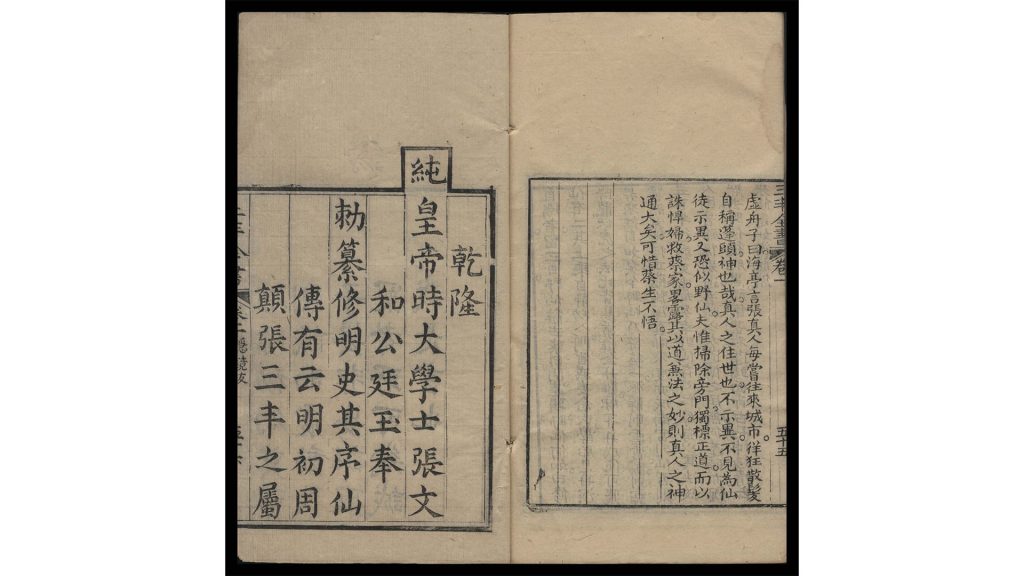 三丰全書 卷一 五十五
虛舟子曰海亭言張真人每嘗往來城市徉狂散髮。
自稱蓬頭神也哉。真人之住世也。不示異不見為仙。
徒示異又恐似野仙。夫惟掃除旁門。獨標正道。而以
誅悍婦救蔡家畧露其以道無法之妙。則真人之神
通大矣。可惜蔡生不悟。
乾隆
純皇帝時大學士張文
和公廷玉奉
勅纂修明史其序仙
傳有云明初周
顛張三丰之屬
三丰全書